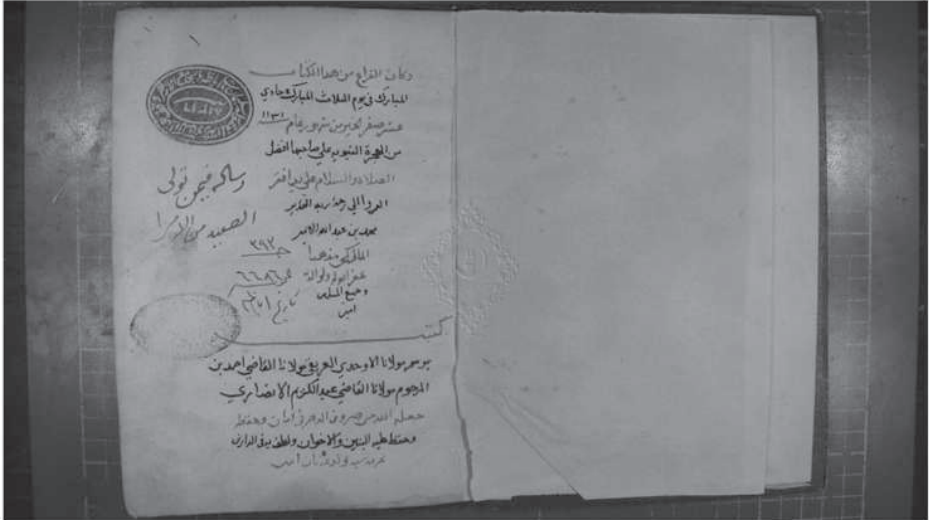 وكان الفراغ من هذا الكتاب
المبارك في يوم الثلاث المبارك حادي
عشر صفر الخير من شهور عام ١١٣١
من الهجرة النبوية على صاحبها افضل
الصلاة والسلام على يد افقر
الورا الى رحمة ربه القدير
محمد بن عبد الله الازهر
المالكي مذهبا
غفر الله له ولوالديه
وجميع المسلمين
امين
رسالة فيمن تولى
الصعيد من الامرا
٣٩٢
٦٦٨٦
تاريخ
كتب
برسم مولانا الاوحدي العريق مولانا القاضي احمد بن
المرحوم مولانا القاضي عبد الكريم الانصاري
جعله الله من صروف الدهر في امان وحفظه
وحفظ عليه البنين والاخوان ولطف به في الدارين
امين